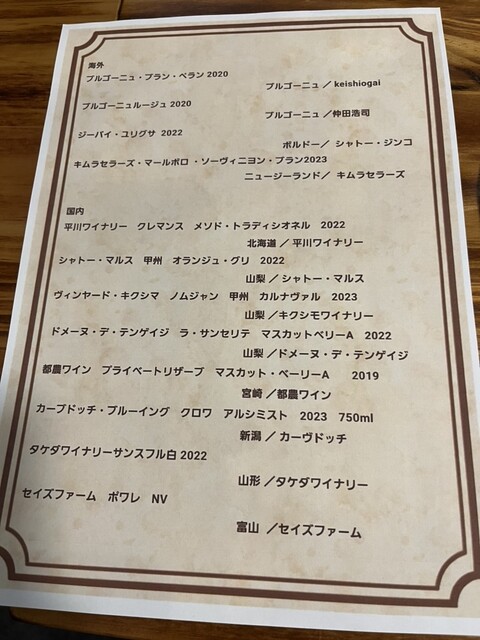 海外
ブルゴーニュ・ブラン・ペラン 2020
ブルゴーニュ／ keishiogai
ブルゴーニュルージュ 2020
ブルゴーニュ／仲田浩司
ジーバイ・ユリグサ 2022
ボルドー／ シャトー・ジンコ
キムラセラーズ・マールボロ・ソーヴィニヨン・ブラン2023
ニュージーランド／ キムラセラーズ
国内
平川ワイナリー クレマンス メソド・トラディシオネル 2022
北海道 ／ 平川ワイナリー
シャトー・マルス 甲州 オランジュ・グリ 2022
山梨 ／シャトー・マルス
ヴィンヤード・キクシマ ノムジャン 甲州 カルナヴァル 2023
山梨 ／キクシモワイナリー
ドメーヌ・デ・テンゲイジ ラ・サンセリテ マスカットベリーA 2022
山梨 ／ドメーヌ・デ・テンゲイジ
都農ワイン プライベートリザーブ マスカット・ベーリーA 2019
宮崎 ／都農ワイン
カーブドッチ・ブルーイング クロワ アルシミスト 2023 750ml
新潟 ／ カーヴドッチ
タケダワイナリーサンスフル白 2022
山形 ／タケダワイナリー
セイズファーム ポワレ NV
富山 ／セイズファーム